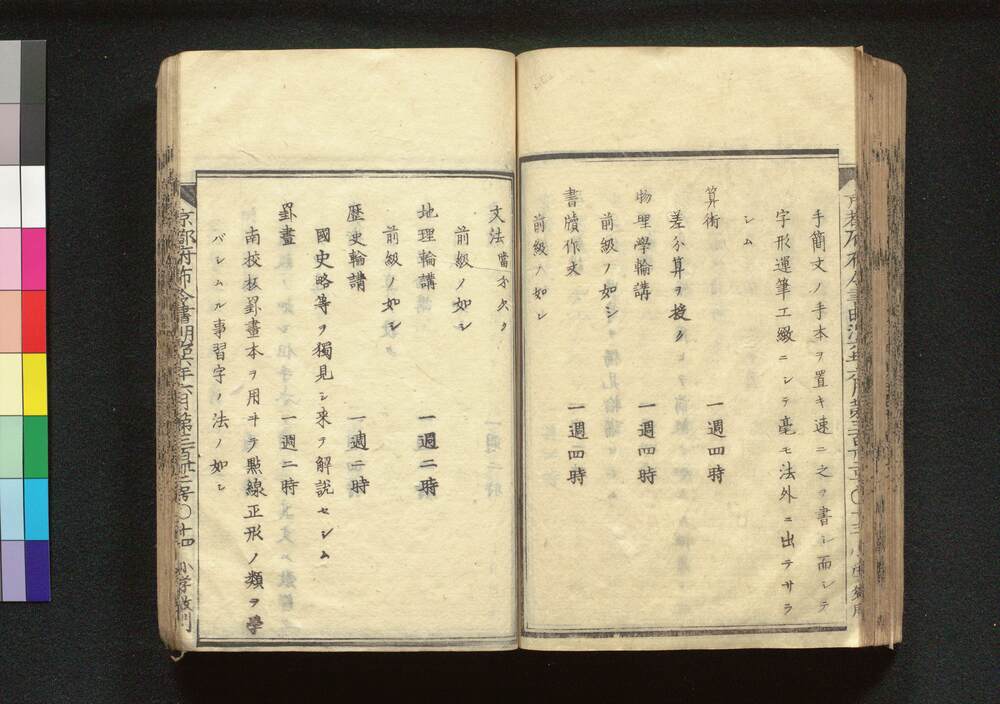 手簡文ノ手本ヲ置キ速ニ之ヲ書シ而シテ
字形運筆工緻ニシテ毫モ法外ニ出テサラ
シム
算術 一週四時
差分算ヲ授ク
物理學輪講 一週四時
前級ノ如シ
書牘作文 一週四時
前級ノ如シ
文法 當分欠ク
前級ノ如シ
地理輪講 一週二時
前級ノ如シ
歴史輪講 一週二時
國史略等ヲ獨見シ来テ解説セシム
罫畫 一週二時
南校板罫畫本ヲ用ヰテ點線正形ノ類ヲ學
バシムル事習字ノ法ノ如シ
京都府布令書明治六年六月第三百廿二号〇十四 小学教則